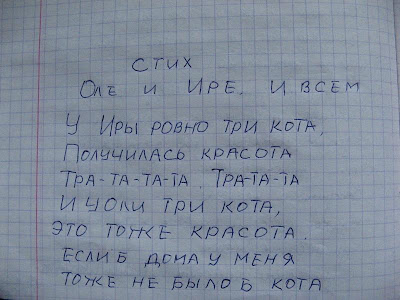 СТИХ
ОЛЕ И ИРЕ. И ВСЕМ
У ИРЫ РОВНО ТРИ КОТА,
ПОЛУЧИЛАСЬ КРАСОТА
ТРА-ТА-ТА-ТА. ТРА-ТА-ТА
И У ОЛИ ТРИ КОТА,
ЭТО ТОЖЕ КРАСОТА.
ЕСЛИ Б ДОМА У МЕНЯ
ТОЖЕ НЕ БЫЛО Б КОТА